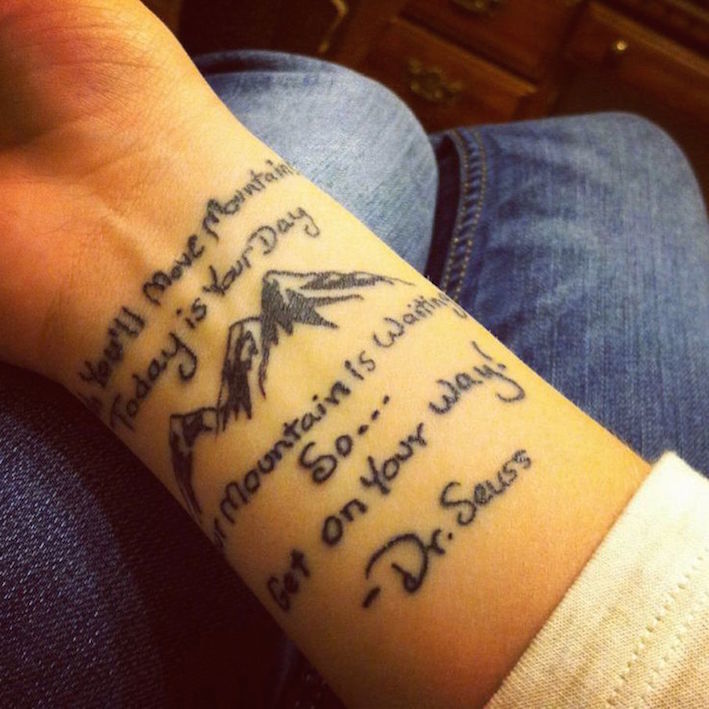 You'll Move Mountain
Today is Your Day
Mountain is Waiting
So...
Get on Your way!
-Dr. Seuss